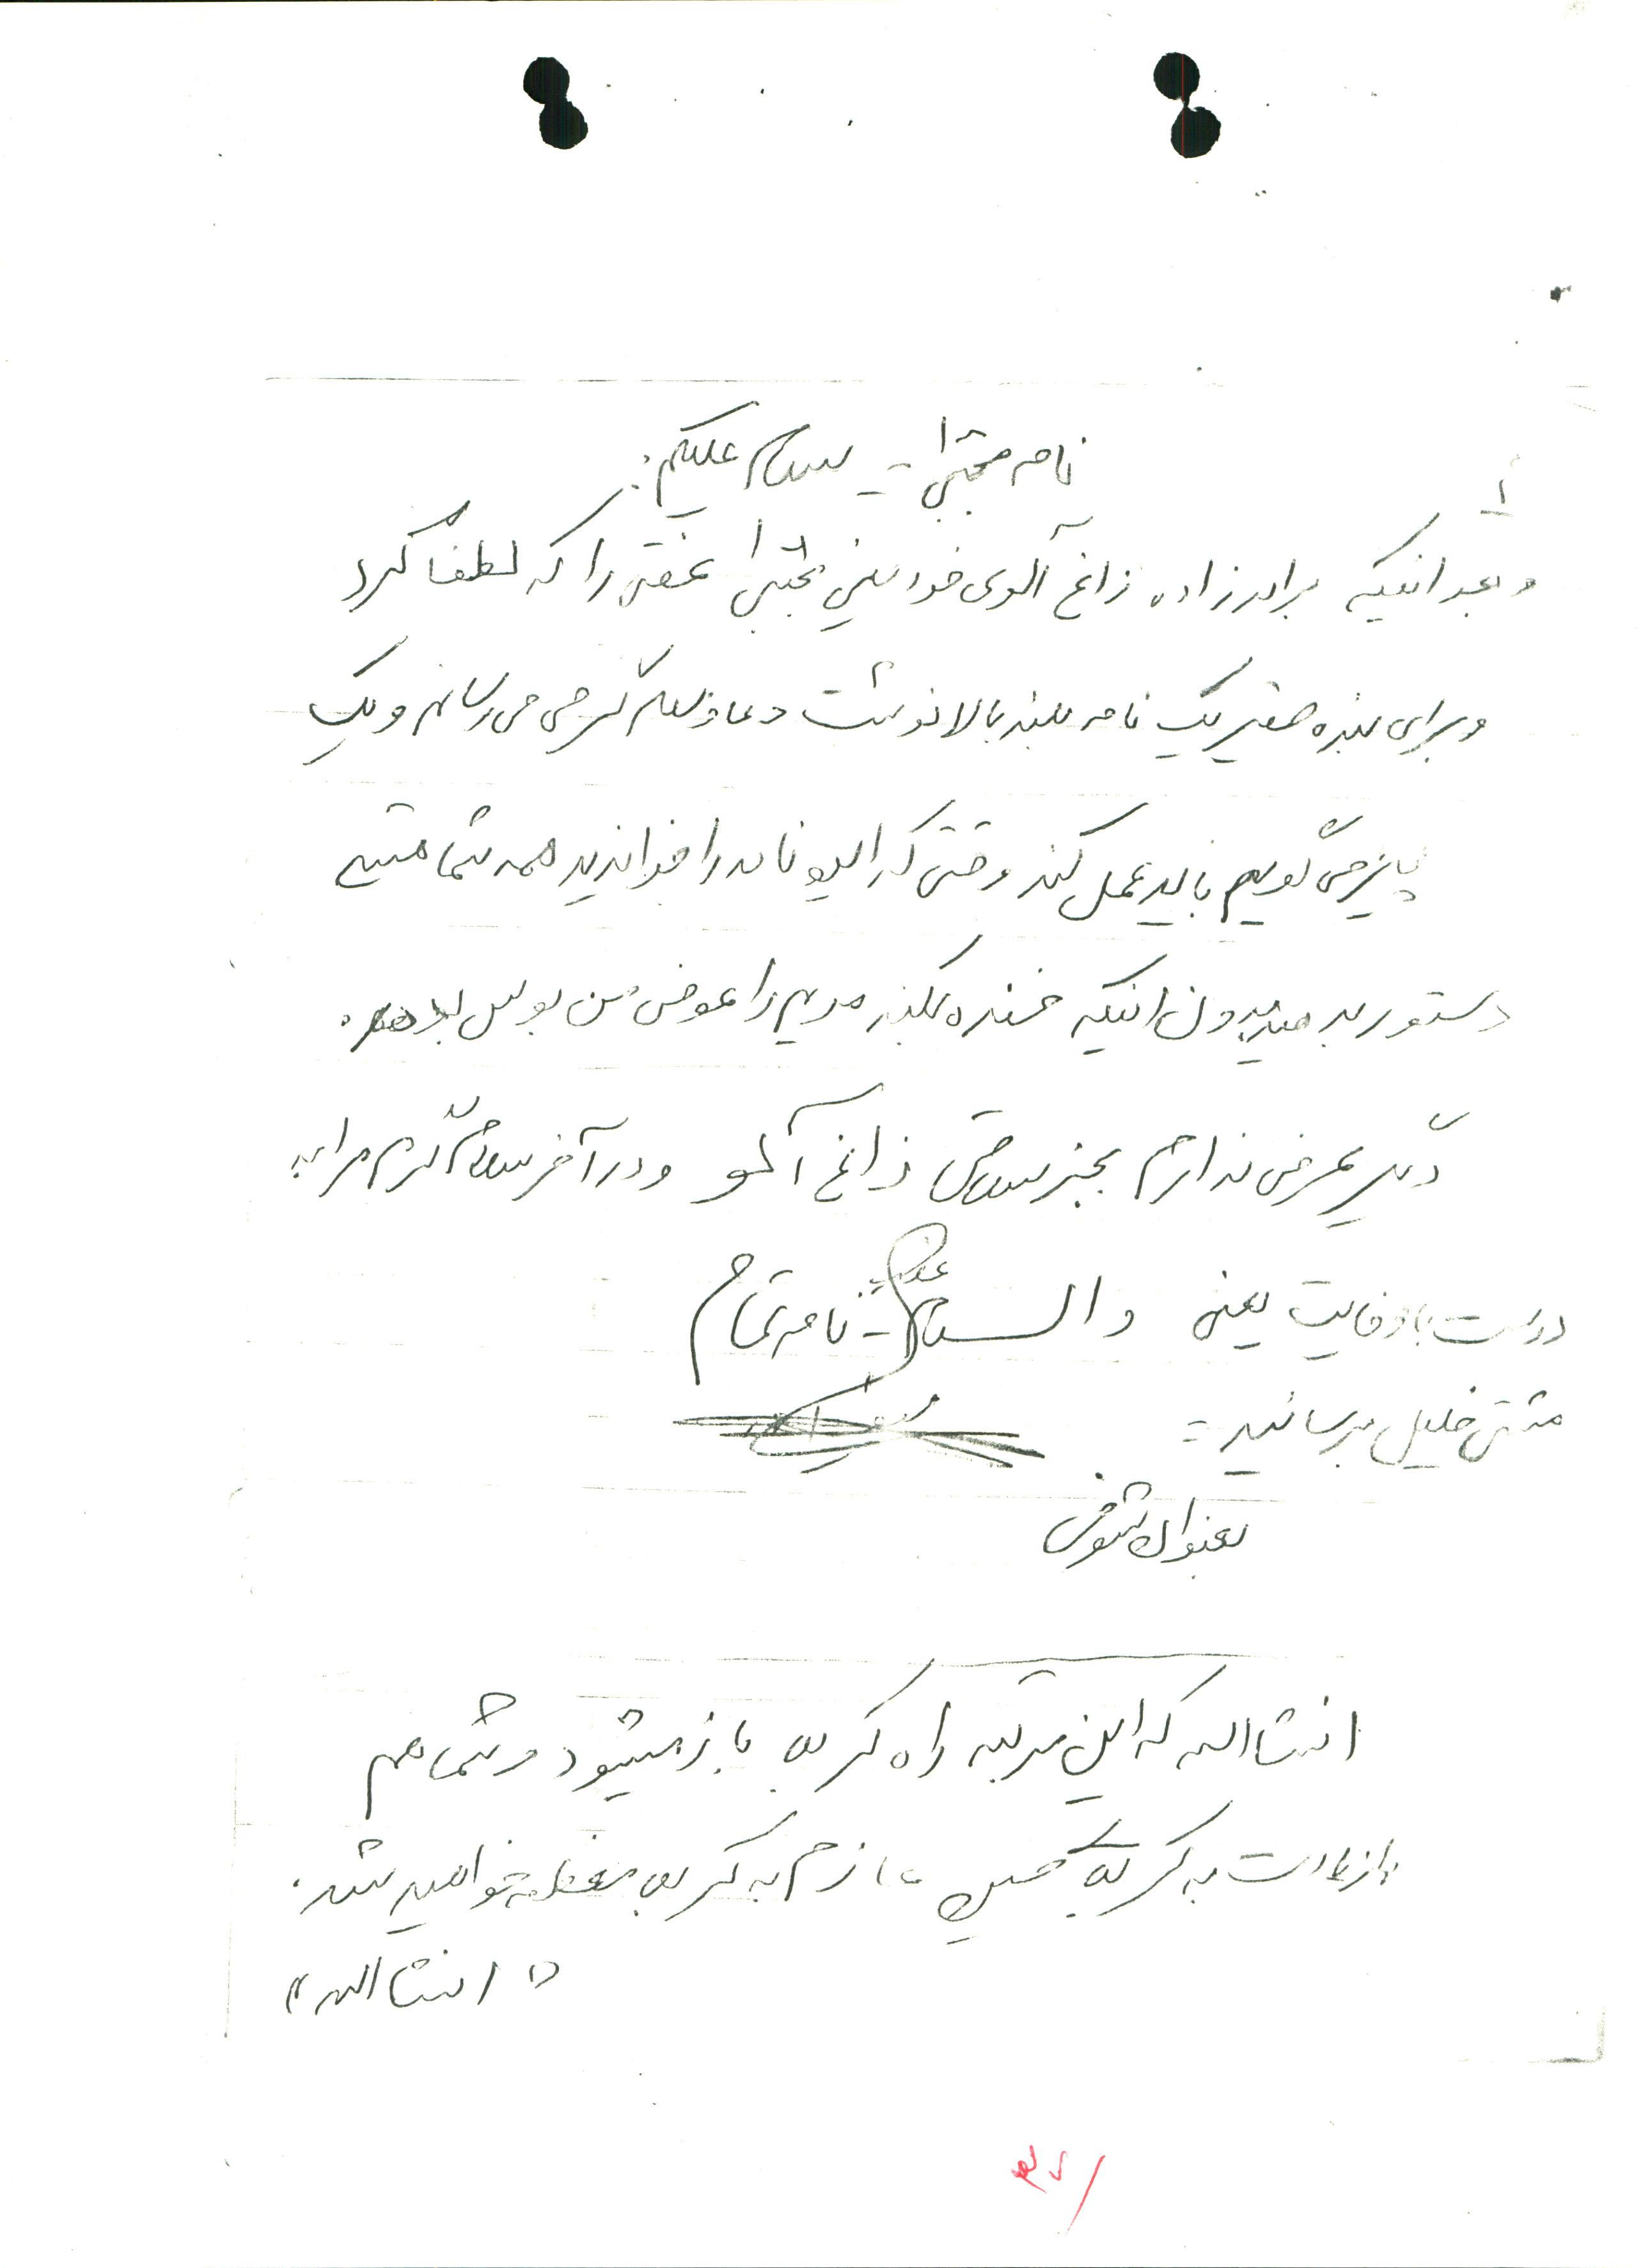 نامه مجتبی - سلام علیکم:
و بعد اینکه برادرزاده زاغ آلوی خود یعنی مجتبی را که لطف کرد
و برای بنده حقیر یک نامه بلند بالا نوشت دعا و سلام گرمی می رسانم و یک
چیز می گویم باید عمل کند وقتی که این نامه را خواندید همه شما
دستور بدهید بدون اینکه خنده بکند مریم را عوض من بوس بدهد.
دیگر عرضی ندارم بجز سلامتی زاغ آلو و در آخر سلام گرم مرا به
دوست باوفایت یعنی والسلام - نامه تمام
خلیل برسانید -
بعنوان شوخی
انشاالله که این مرتبه راه کربلا باز میشود و شما هم
به کربلای عازم به کربلای معظمه خواهید شد.
« انشاالله »